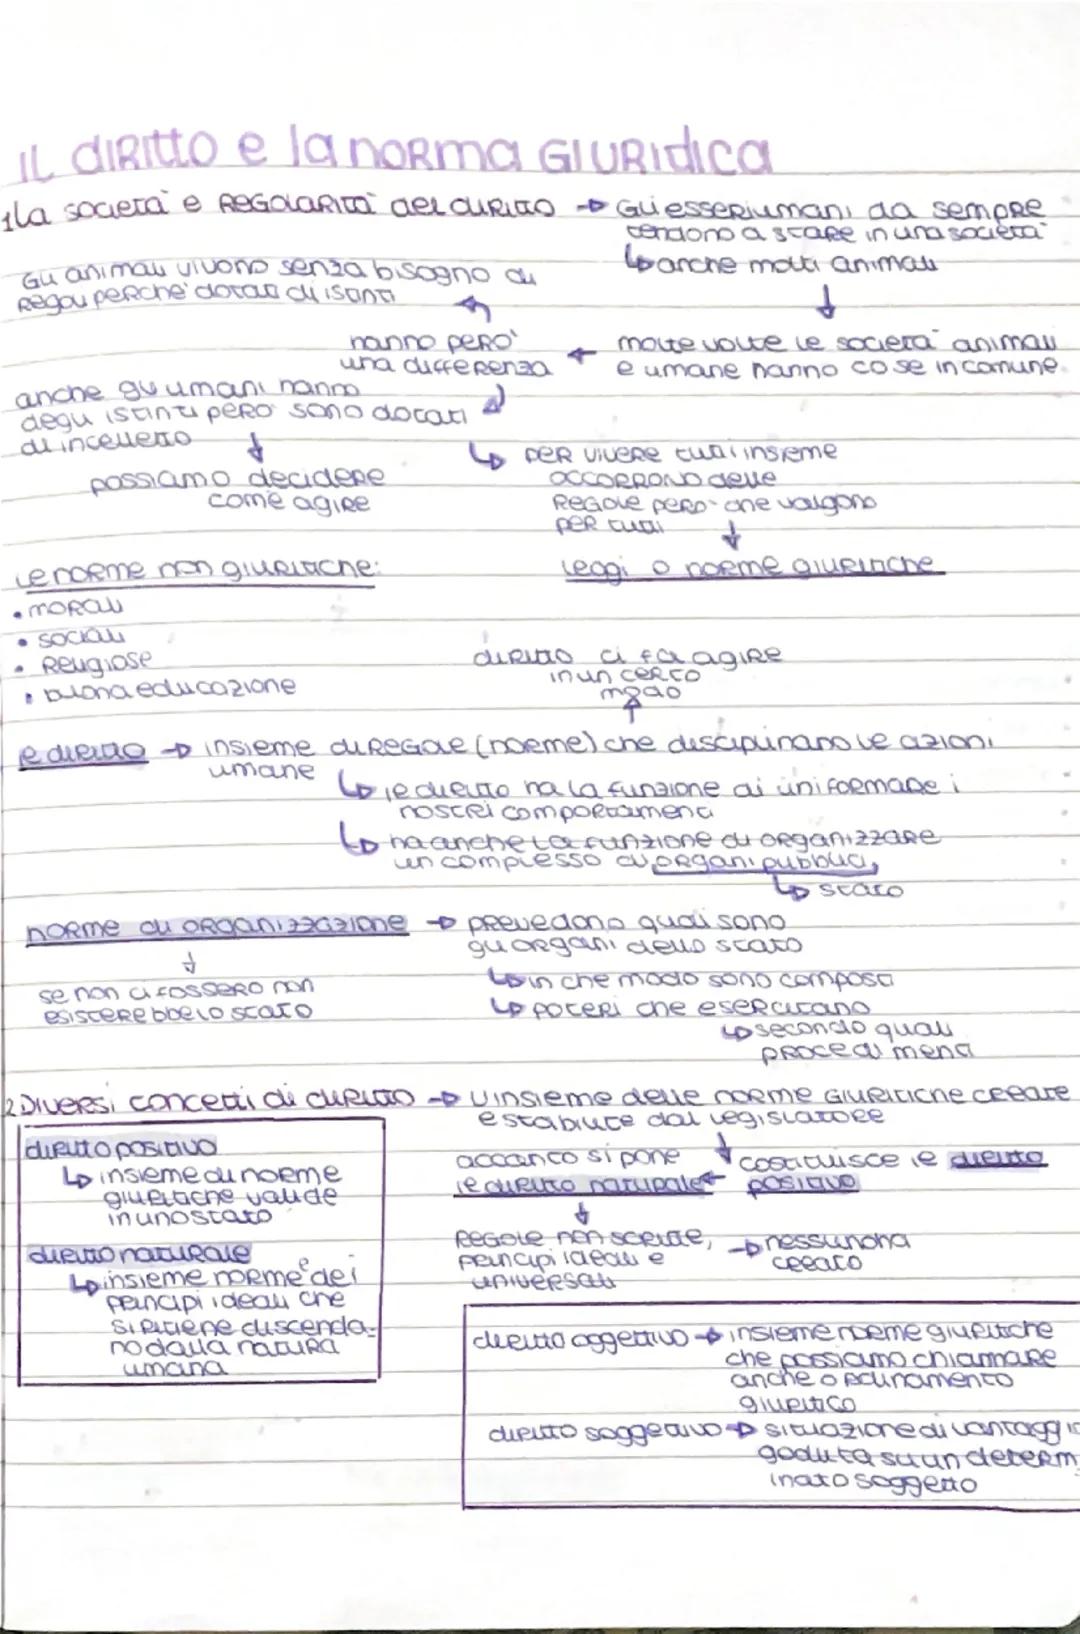 IL DIRITTO e la NORMA GIURIDICA
1 La società e REGOLARITÀ del DIRITTO → Gli esseri umani da sempre
tendono a stare in una società
↳ anche molti animali
Gli animali vivono senza bisogno di
Regole perchè dotati di istinti
hanno però
una differenza
← molte volte le società animali
e umane hanno cose in comune.
anche gli umani hanno
degli istinti però sono dotati
di intelletto
possiamo decidere
come agire
↳ PER VIVERE tutti insieme
OCCORRONO delle
Regole però che valgono
per tutti
Leggi o norme giuridiche
Le norme non giuridiche:
• MORALI
• SOCIALI
• Religiose
• buona educazione
diritto ci fa agire
in un certo
modo
Il diritto → insieme di REGOLE (norme) che disciplinano le azioni
umane
↳ il diritto ha la funzione di uniformare i
nostri comportamenti
↳ ha anche la funzione di organizzare
un complesso di organi pubblici,
↳ stato
norme di organizzazione → prevedono quali sono
gli organi dello stato
se non ci fossero non
esisterebbe lo stato
↳ in che modo sono composti
↳ poteri che esercitano
↳ secondo quali
procedimenti
2 Diversi concetti di diritto → L'insieme delle norme giuridiche create
e stabilite dal legislatore
diritto positivo
↳ insieme di norme
giuridiche valide
in uno stato
diritto naturale
↳ insieme norme e dei
principi ideali che
si ritiene discenda-
no dalla natura
umana
costituisce il diritto
positivo
accanto si pone
il diritto naturale ←
Regole non scritte,
principi ideali e
universali
→ nessuno ha
creato
diritto oggettivo → insieme norme giuridiche
che possiamo chiamare
anche ordinamento
giuridico
diritto soggettivo → situazione di vantaggio
goduta su un determ-
inato soggetto